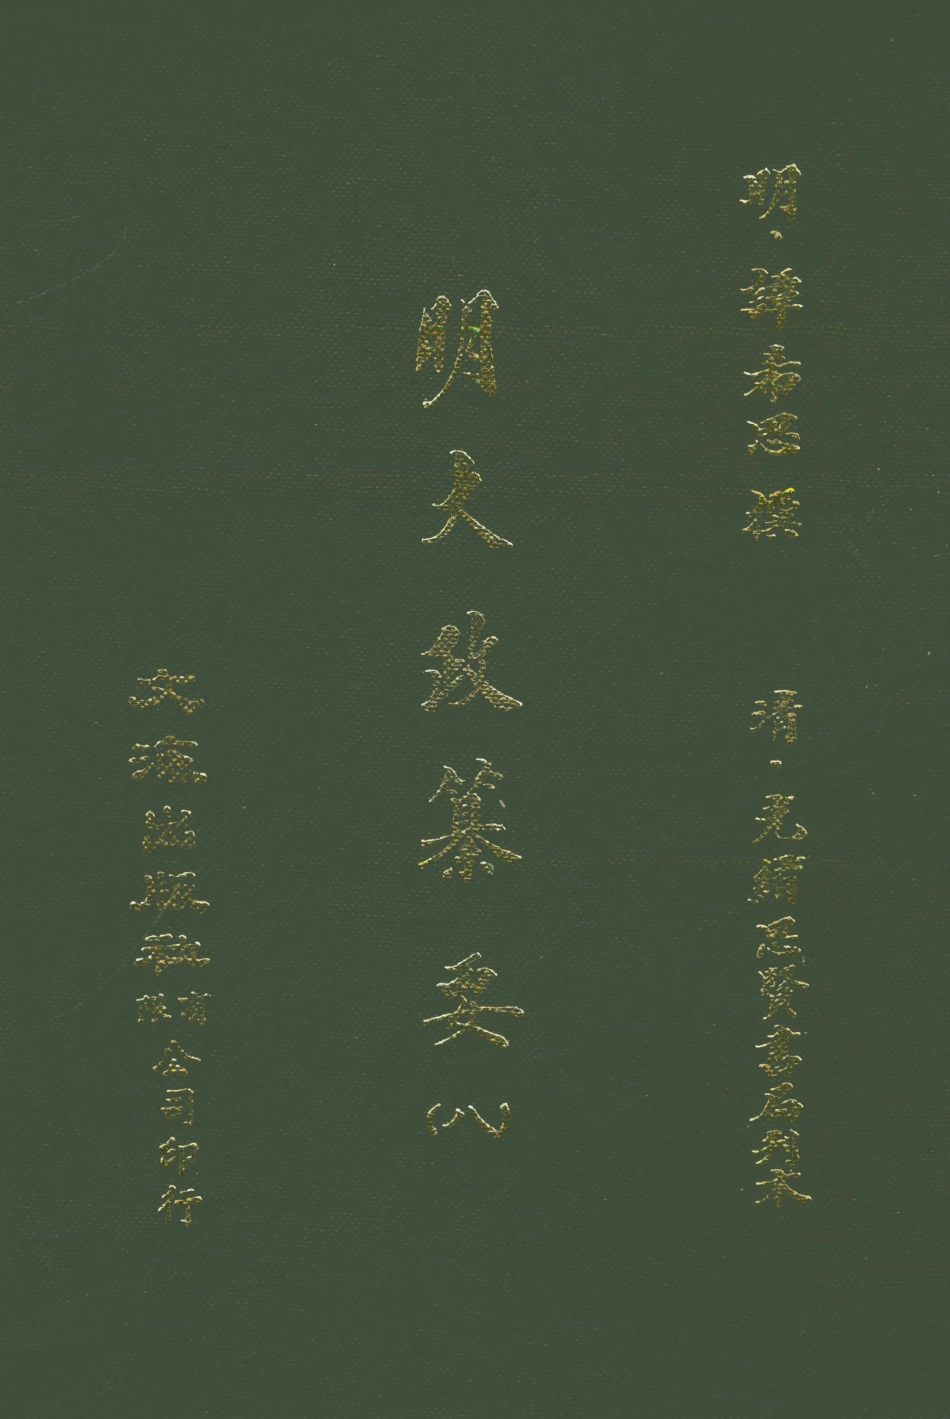 明·譚希思撰　清·光緒思賢書局刊本
明大政纂要(八)
文海出版社有限公司印行